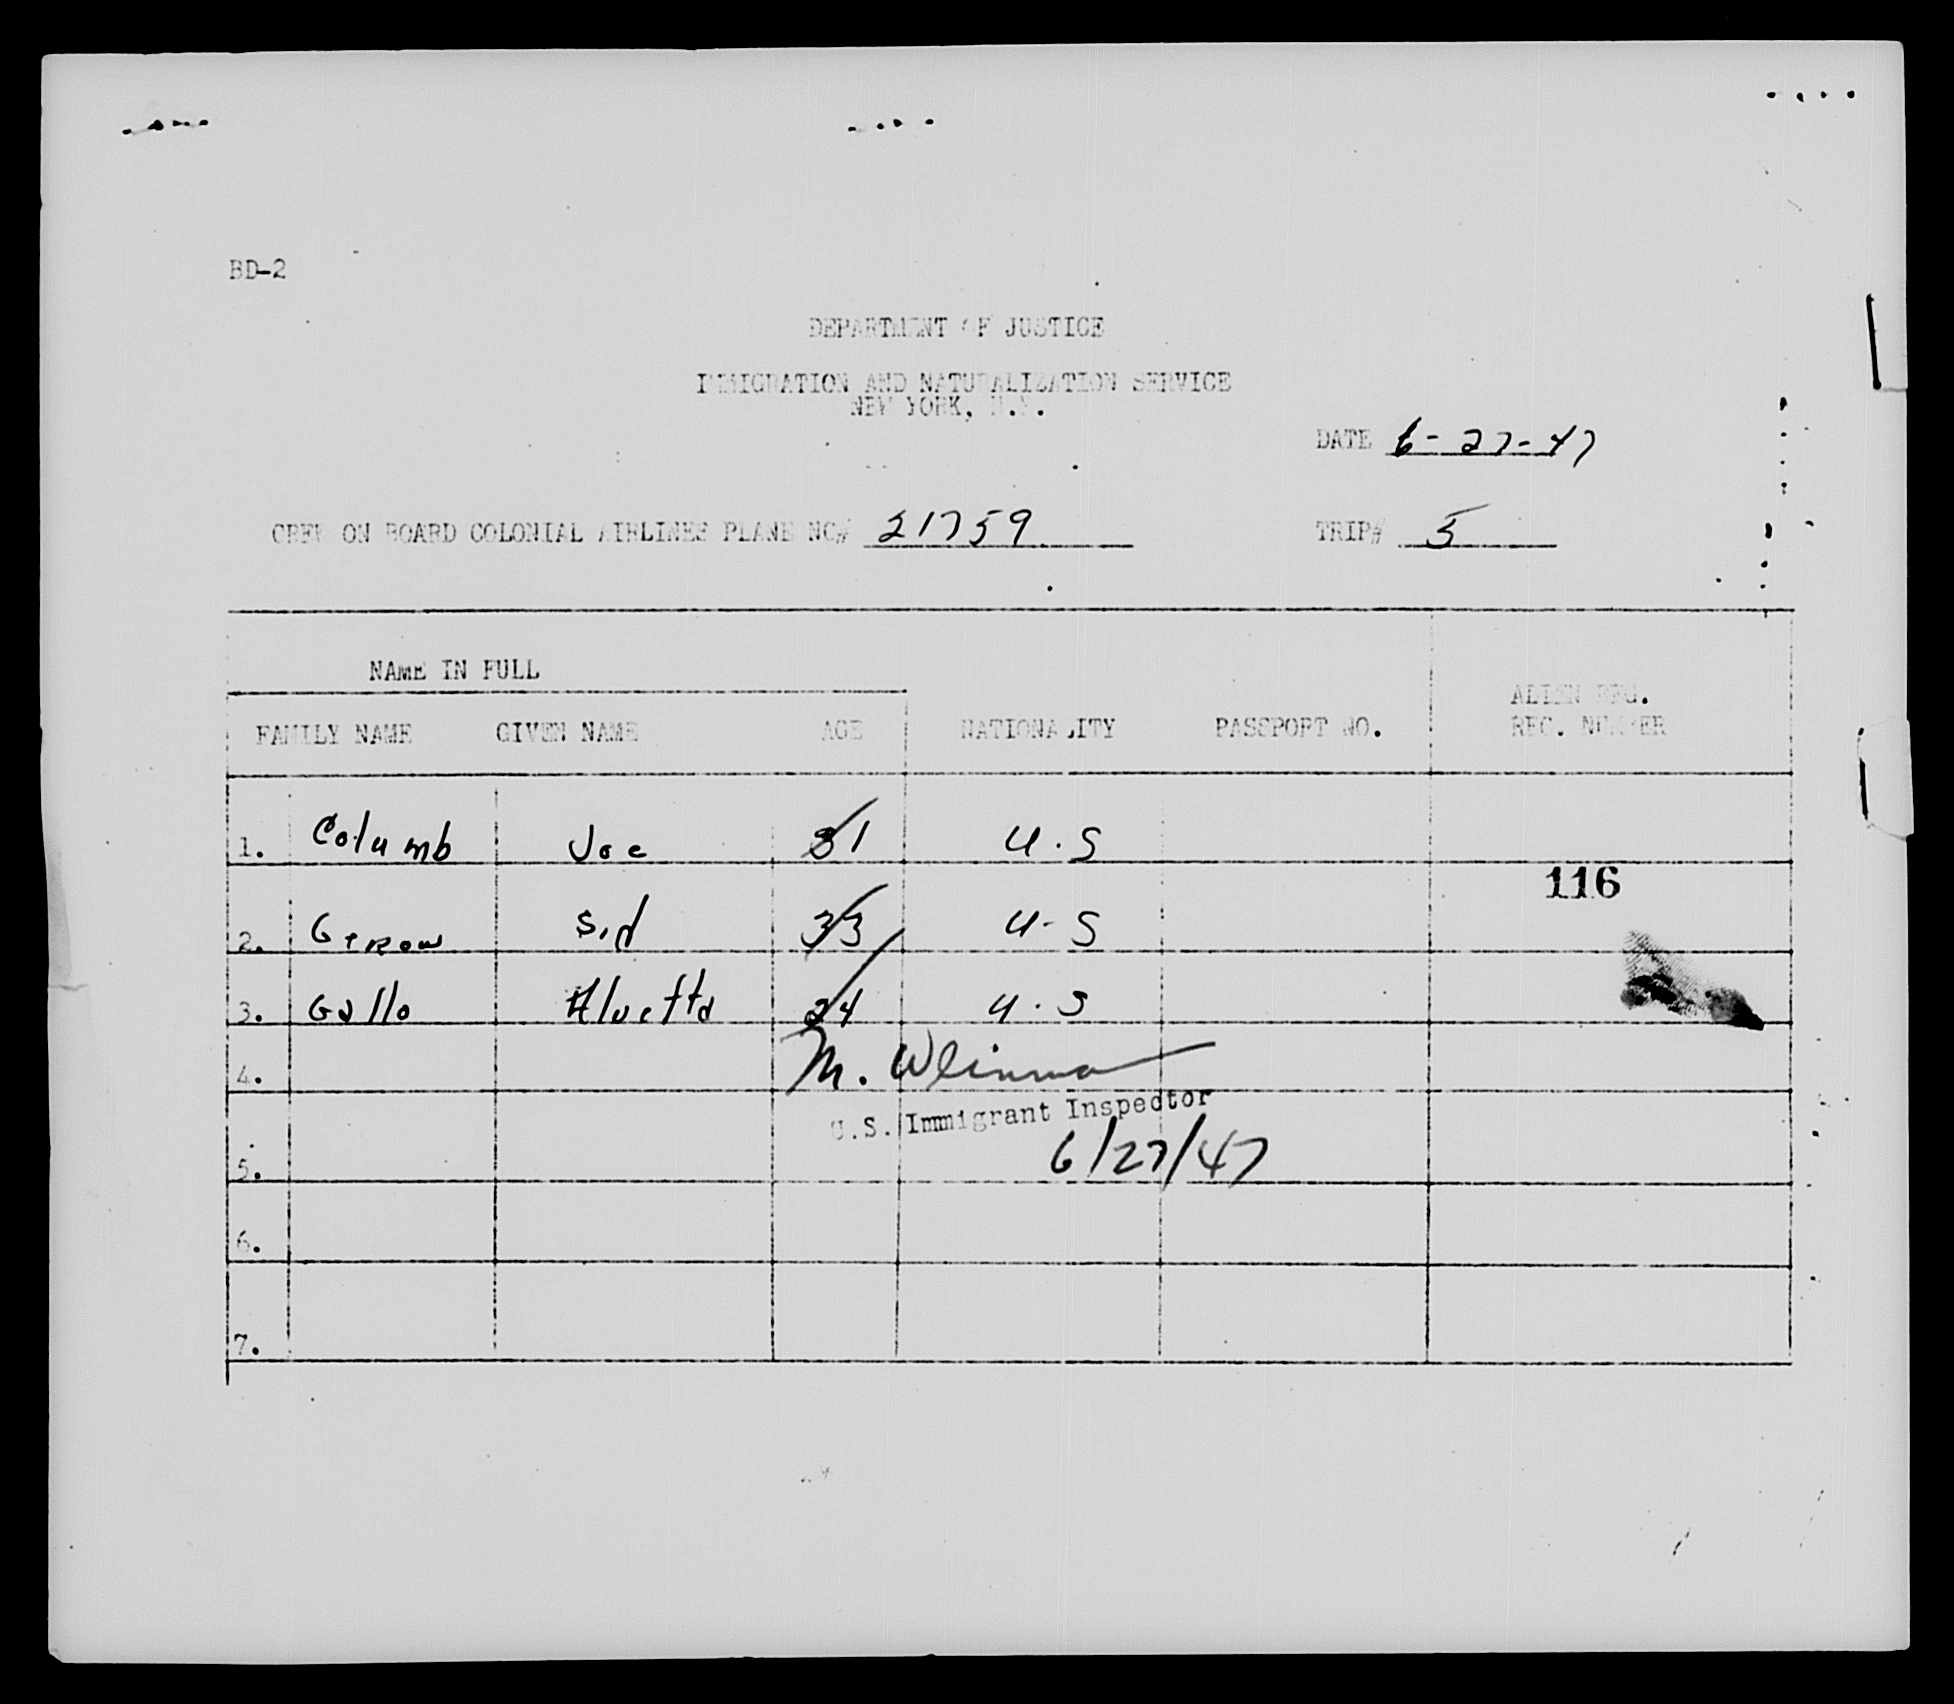 BD-2
DEPARTMENT OF JUSTICE
IMMIGRATION AND NATURALIZATION SERVICE
NEW YORK, N.Y.
DATE 6-27-47
CREW ON BOARD COLONIAL AIRLINES PLANE NC# 21759 TRIP# 5
NAME IN FULL
ALIEN REG.
FAMILY NAME GIVEN NAME AGE NATIONALITY PASSPORT NO. REC. NUMBER
1. Columb Joe 31 U.S
116
2. Gerow Sid 33 U-S
3. Gallo Alvetta 24 U.S
4. M.
U.S. Immigrant Inspector
5. 6/27/47
6.
7.